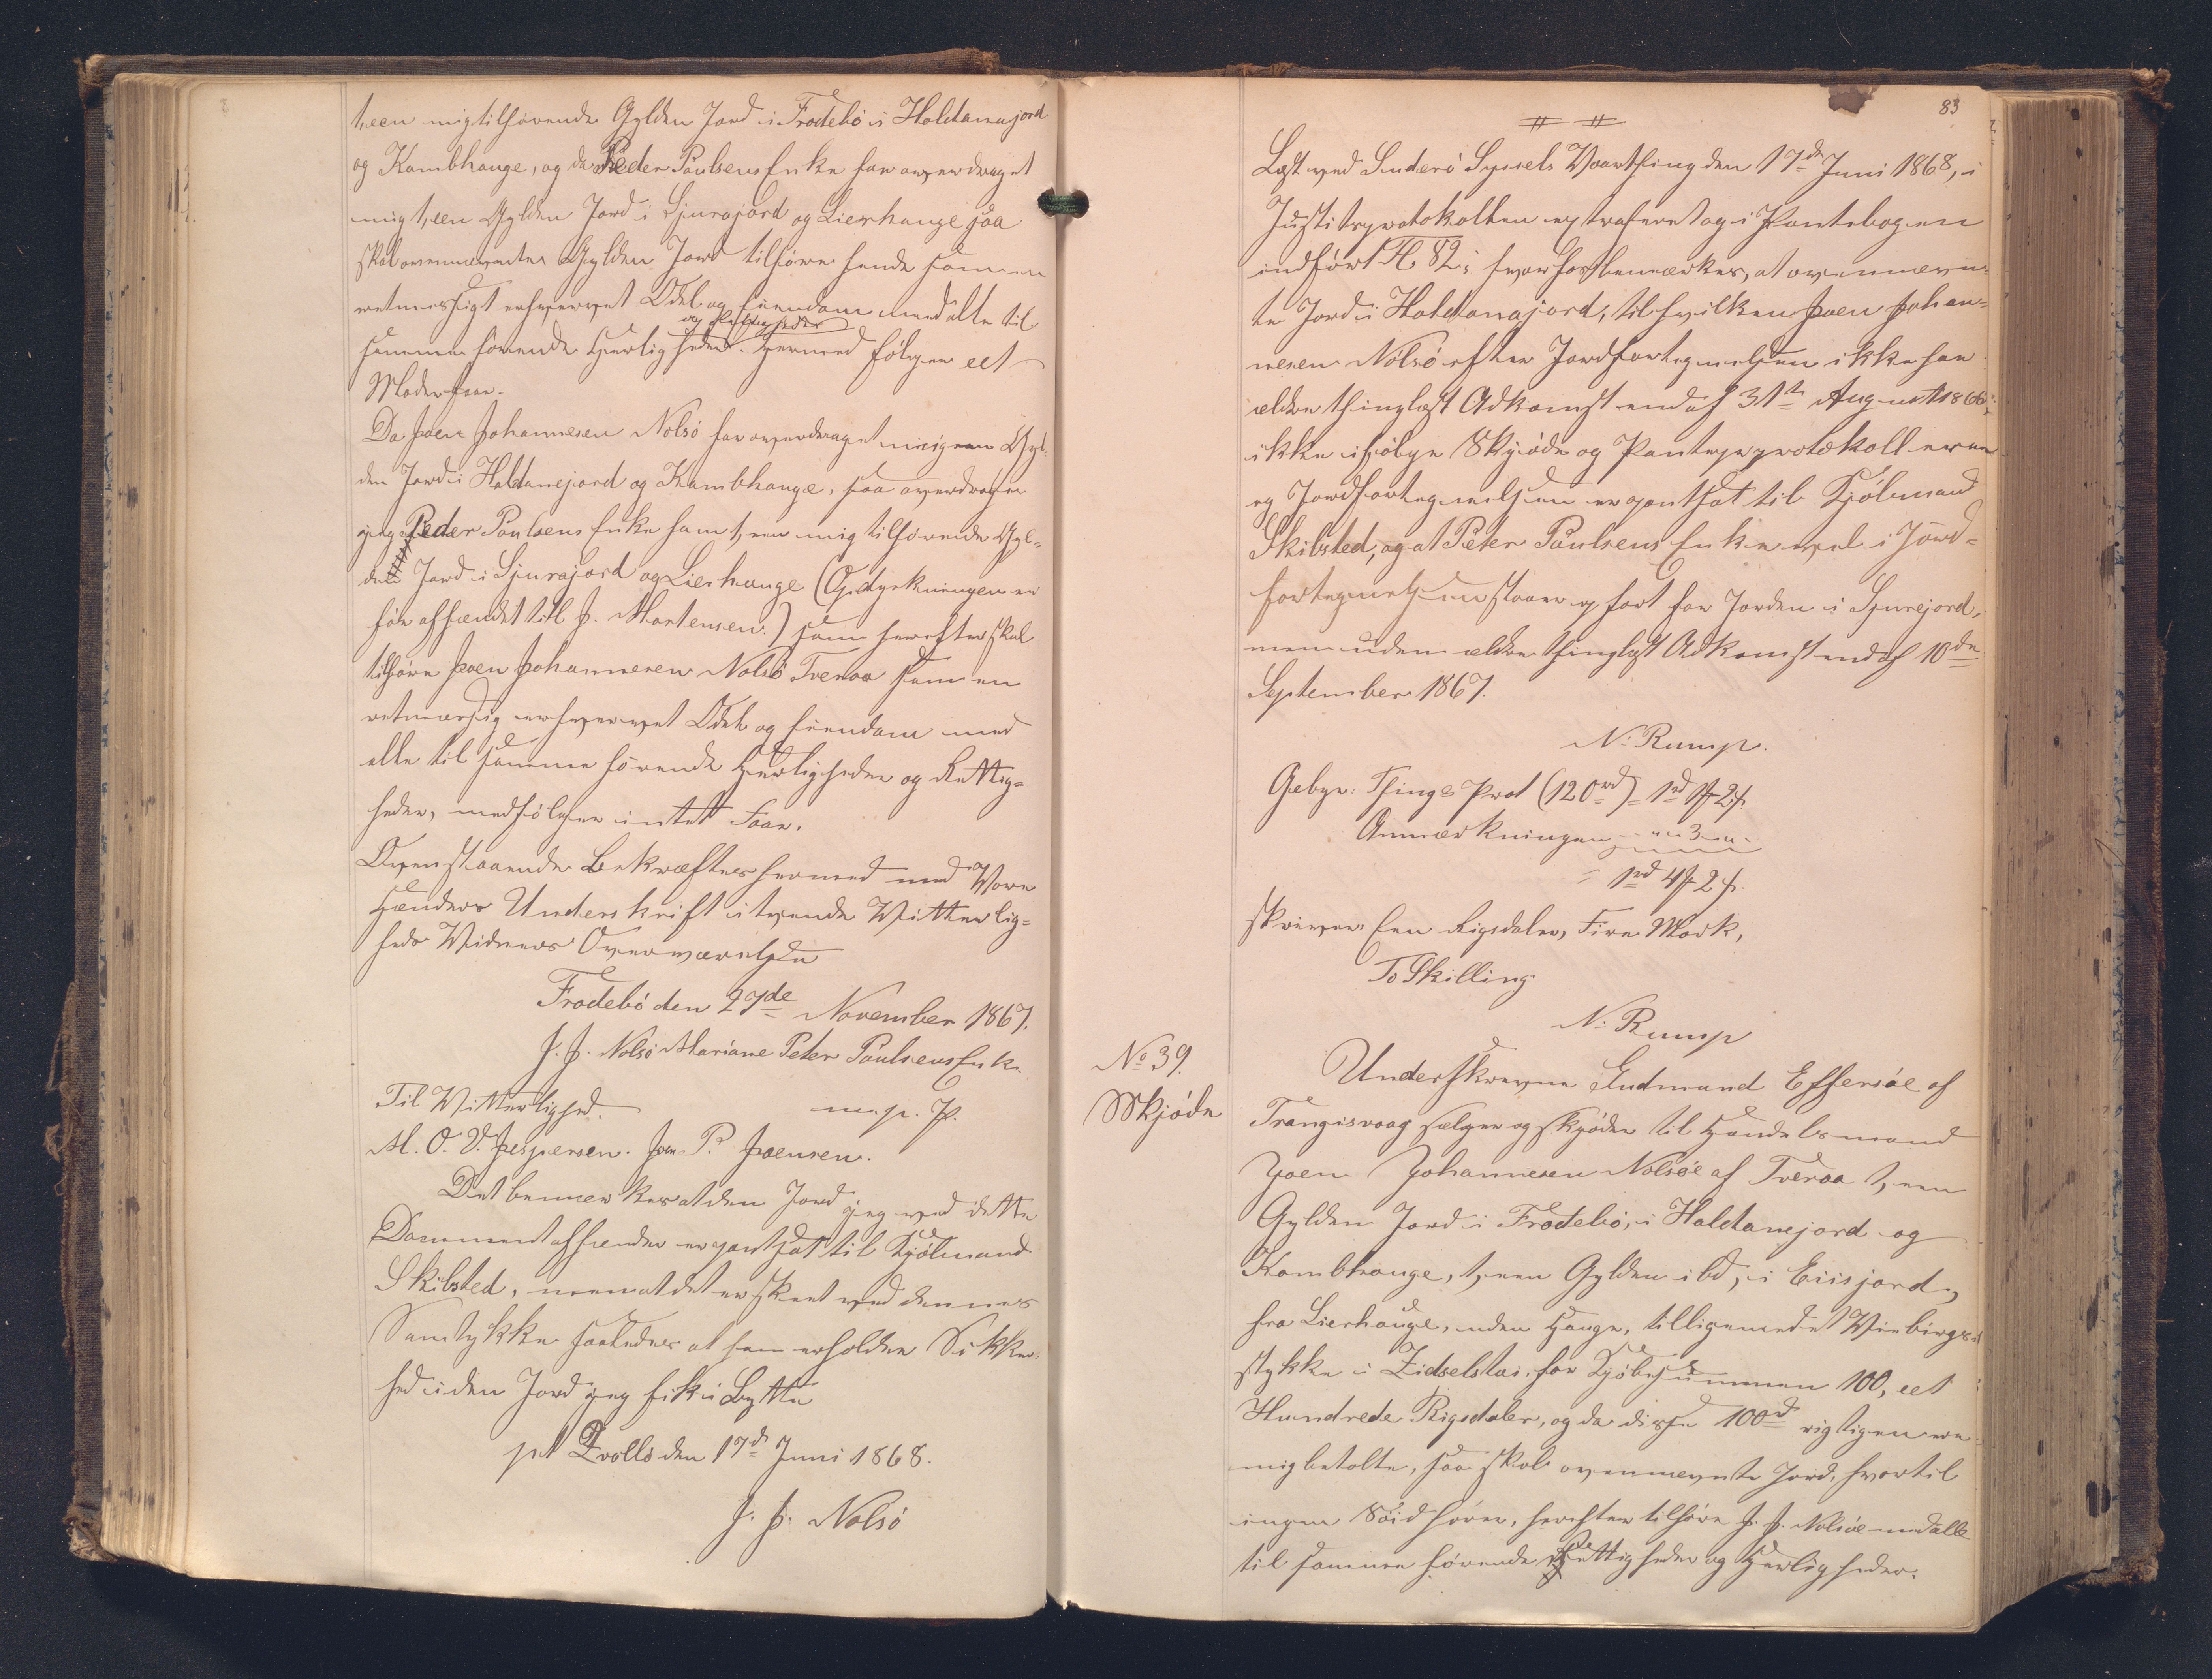 1, een mig tilhørende Gylden Jord i Frodebö i Haldanajord
og Kambhauge, og da Peder Poulsens Enke har overdraget
mig 1, een Gylden Jord i Sjurajord og Lierhauge saa
skal ovennævnte Gylden Jord tilhøre hende som en
retmæssigt erhvervet Odel og Eiendom med alle til
samme hørende Herligheder og Rettigheder. Hermed følger eet
Moderfaar.
Da Joen Johannesen Nolsö har overdraget mig een Gyl-
den Jord i Haldanejord og Kambhauge, saa overdrager
jeg Peder Poulsens Enke ham 1, een mig tilhørende Gyl-
den Jord i Sjurajord og Lierhauge (Opdyrkningen er
før afhændet til J. Mortensen.) som herefter skal
tilhøre Joen Johannesen Nolsö Tveraa som en
retmæssig erhvervet Odel og Eiendom med
alle til samme hørende Herligheder og Rettig-
heder, medfølger intet Faar.
Ovenstaaende Bekræftes hermed med Vore
Hænders Underskrift i tvende Vitterlig-
heds Vidners Overværelse
Frodebö den 27de November 1867.
J. J. Nolsö Mariane Peter Poulsens Enke
Til Vitterlighed. m. p. P.
M. O. V. Jespersen. Joen P. Joensen.
Det bemærkes at den Jord jeg ved dette
Document afhænder er pantsat til Kjøbmand
Skibsted, men at det er skeet med dennes
Samtykke saaledes at han erholder Sikker-
hed i den Jord jeg fik i Bytte
pt Qvalbö den 17d Juni 1868.
J. J. Nolsö
83
Læst ved Suderö Syssels Vaarthing den 17de Juni 1868, i
Justitsprotokollen extraheret og i Pantebogen
indført Fol. 82; hvorhos bemærkes, at ovennævn-
te Jord i Haldanajord, til hvilken Joen Johan-
nesen Nolsö efter Jordfortegnelsen ikke har
ældre thinglæst Adkomst end af 31te August 1866,
ikke ifølge Skjøde og Panteprotokollerne
og Jordfortegnelsen er pantsat til Kjøbmand
Skibsted, og at Peter Poulsens Enke vel i Jord-
fortegnelsen staaer opført for Jorden i Sjurejord,
men uden ældre thinglæst Adkomst end af 10de
September 1867.
N. Rump.
Gebyr: Things Prot (120rd) = 1rd 1 ₰ 2 ß.
Anmærkningen " 3 "
= 1rd 4 ₰ 2 ß.
skriver Een Rigsdaler, Fire Mark,
To Skilling
N. Rump
No 39.
Skjøde
Underskrevne Gudmund Effersöe af
Trangisvaag sælger og skjøder til Handelsmand
Joen Johannesen Nolsöe af Tveraa 1, een
Gylden Jord i Frodebö, i Haldanejord og
Kambhauge, 1, een Gylden ibd, i Eiisjord,
fra Lierhauge, uden Hauge, tilligemed et
stykke i for Kjøbesummen 100, eet
Hundrede Rigsdaler, og da disse 100rd rigtigen ere
mig betalte, saa skal ovennævnte Jord, hvortil
ingen hører, herefter tilhøre J. J. Nolsöe med alle
til samme hørende Rettigheder og Herligheder.